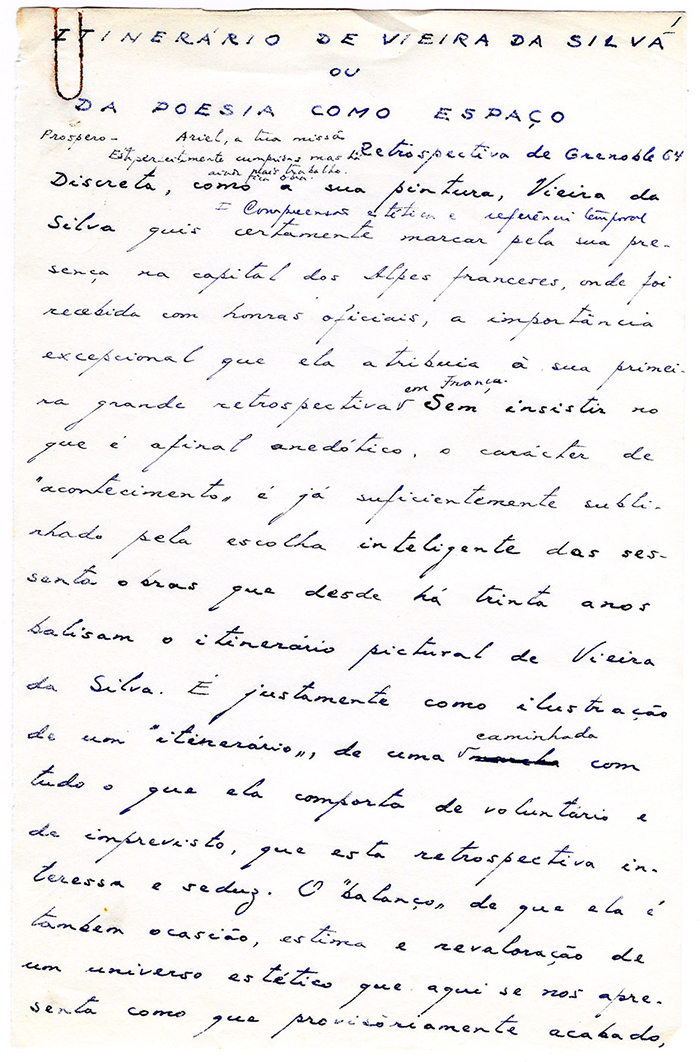 1
ITINERÁRIO DE VIEIRA DA SILVA
OU
DA POESIA COMO ESPAÇO
Próspero - Ariel, a tua missão
cumprida mas há
ainda mais trabalho.
Retrospectiva de Grenoble 64
Discreta, como a sua pintura, Vieira da
I Compreensão estética e referência temporal
Silva quis certamente marcar pela sua pre-
sença na capital dos Alpes franceses, onde foi
recebida com honras oficiais, a importância
excepcional que ela atribuia à sua primei-
em França.
ra grande retrospectiva Sem insistir no
que é afinal anedótico, o carácter de
"acontecimento" é já suficientemente subli-
nhado pela escolha inteligente das ses-
senta obras que desde há trinta anos
balisam o itinerário pictural de Vieira
da Silva. É justamente como ilustração
caminhada
de um "itinerário", de uma com
tudo o que ela comporta de voluntário e
de imprevisto, que esta retrospectiva in-
teressa e seduz. O "balanço" de que ela é
tambem ocasião, estima e revaloração de
um universo estético que aqui se nos apre-
senta como que provisòriamente acabado,